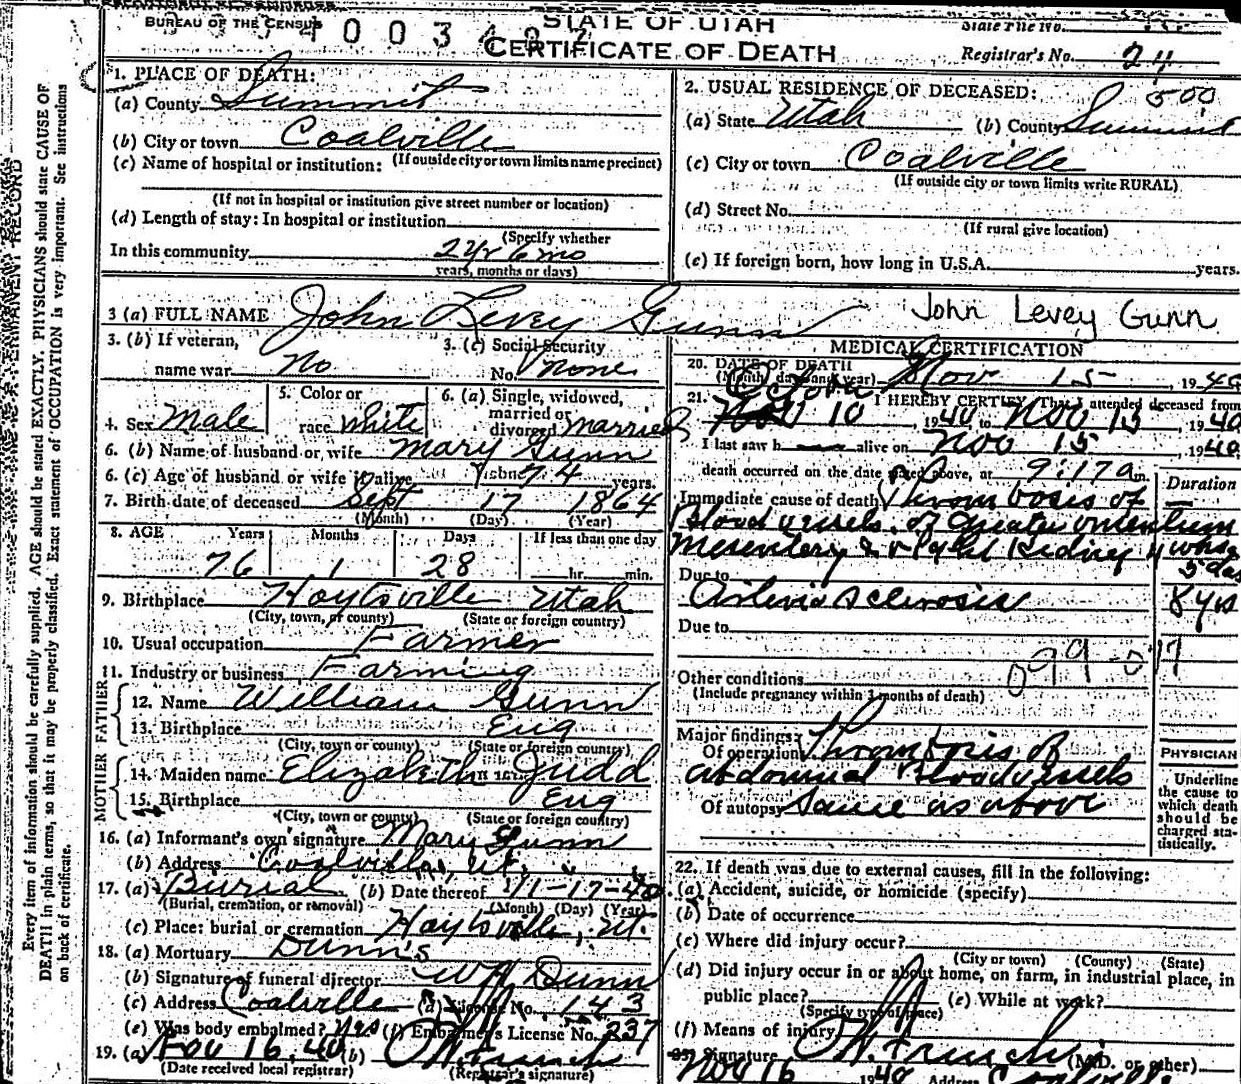 BUREAU OF THE CENSUS
STATE OF UTAH
CERTIFICATE OF DEATH
State File No.
Registrar's No. 24
Every item of information should be carefully supplied. AGE should be stated EXACTLY. PHYSICIANS should state CAUSE OF
DEATH in plain terms, so that it may be properly classified. Exact statement of OCCUPATION is very important. See instructions
on back of certificate.
1. PLACE OF DEATH:
(a) County Summit
(b) City or town Coalville
(If outside city or town limits name precinct)
(c) Name of hospital or institution:
(If not in hospital or institution give street number or location)
(d) Length of stay: In hospital or institution
(Specify whether
In this community 2 yr 6 mo
years, months or days)
2. USUAL RESIDENCE OF DECEASED: 500
(a) State Utah (b) County Summit
(c) City or town Coalville
(If outside city or town limits write RURAL)
(d) Street No.
(If rural give location)
(e) If foreign born, how long in U.S.A. years.
3 (a) FULL NAME John Levey Gunn John Levey Gunn
3. (b) If veteran,
name war No
3. (c) Social Security
No. None
4. Sex Male
5. Color or
race White
6. (a) Single, widowed,
married or
divorced Married
6. (b) Name of husband or wife Mary Gunn
6. (c) Age of husband or wife if alive 74 years.
7. Birth date of deceased Sept 17 1864
(Month) (Day) (Year)
8. AGE Years Months Days If less than one day
76 1 28 hr. min.
9. Birthplace Hoytsville Utah
(City, town, or county) (State or foreign country)
10. Usual occupation Farmer
11. Industry or business Farming
FATHER
12. Name William Gunn
13. Birthplace Eng
(City, town or county) (State or foreign country)
MOTHER
14. Maiden name Elizabeth Judd
15. Birthplace Eng
(City, town or county) (State or foreign country)
16. (a) Informant's own signature Mary Gunn
(b) Address Coalville, Ut.
17. (a) Burial (b) Date thereof 11-17-40
(Burial, cremation, or removal) (Month) (Day) (Year)
(c) Place: burial or cremation Hoytsville, Ut.
18. (a) Mortuary Dunn's
(b) Signature of funeral director W H Dunn
(c) Address Coalville (d) License No. 143
(e) Was body embalmed? Yes (f) Embalmer's License No. 237
19. (a) Nov 16, 40 (b)
(Date received local registrar) (Registrar's signature)
MEDICAL CERTIFICATION
20. DATE OF DEATH
(Month, day and year) Nov 15, 1940
21. I HEREBY CERTIFY, That I attended deceased from
10, 1940, to Nov 15, 1940
I last saw h alive on Nov 15, 1940
death occurred on the date stated above, at 9:17 a m.
Duration
Immediate cause of death Thrombosis of
Blood vessels of Greater omentum
Mesentery & Right Kidney
5 das
Due to
Arterio sclerosis 8 yrs
Due to
Other conditions
(Include pregnancy within 3 months of death)
Major findings:
Of operation Thrombosis of
abdominal Bloodvessels
Of autopsy Same as above
PHYSICIAN
Underline
the cause to
which death
should be
charged sta-
tistically.
22. If death was due to external causes, fill in the following:
(a) Accident, suicide, or homicide (specify)
(b) Date of occurrence
(c) Where did injury occur?
(City or town) (County) (State)
(d) Did injury occur in or about home, on farm, in industrial place, in
public place? (e) While at work?
(Specify type of place)
(f) Means of injury
23. Signature (M.D. or other)
Nov 16 1940 Address Coalville